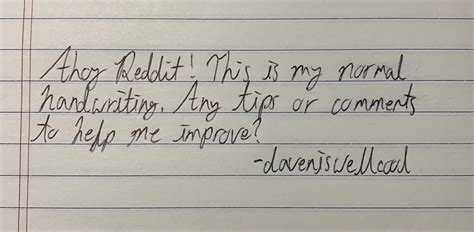 Ahoy Reddit! This is my normal
handwriting. Any tips or comments
to help me improve?
-daveniswellcool